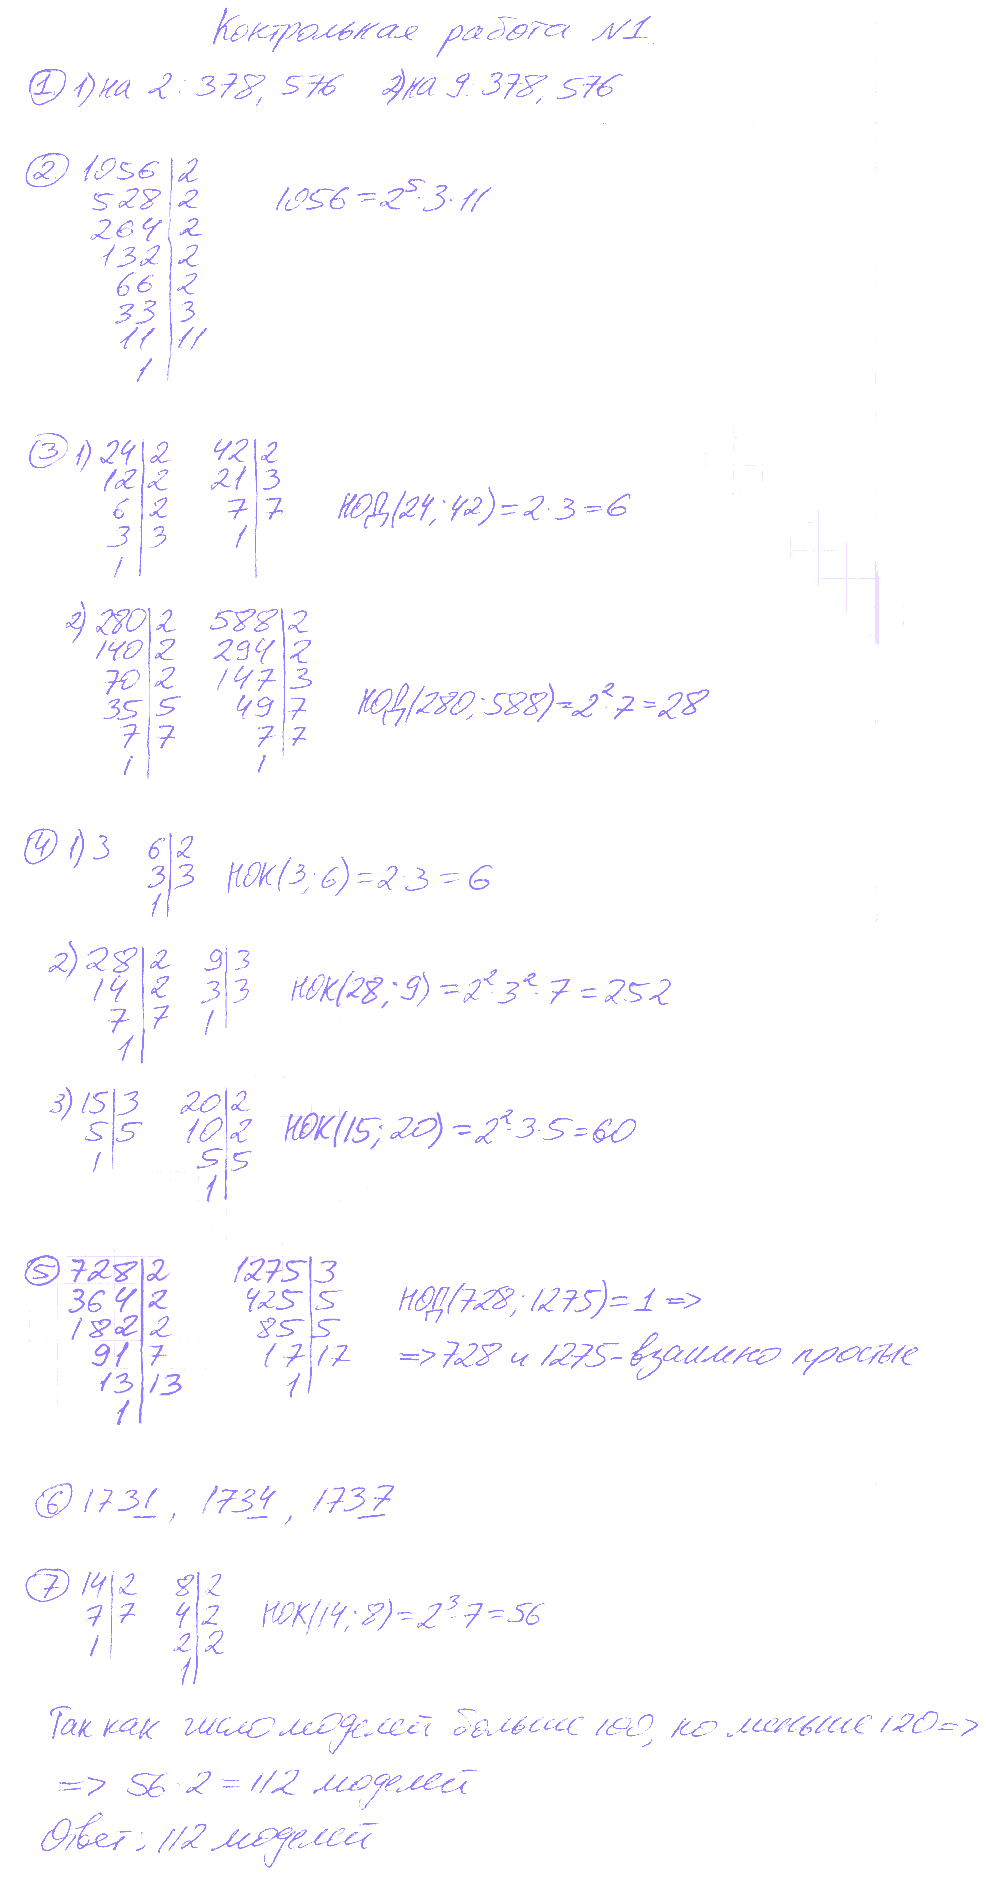 Контрольная работа №1.
① 1) на 2: 378, 576 2) на 9: 378, 576
② 1056 | 2
528 | 2
1056 = 2⁵·3·11
264 | 2
132 | 2
66 | 2
33 | 3
11 | 11
1
③ 1) 24 | 2 42 | 2
12 | 2 21 | 3
6 | 2 7 | 7 НОД(24; 42) = 2·3 = 6
3 | 3 1
1
2) 280 | 2 588 | 2
140 | 2 294 | 2
70 | 2 147 | 3
35 | 5 49 | 7 НОД(280; 588) = 2²·7 = 28
7 | 7 7 | 7
1 1
④ 1) 3 6 | 2
3 | 3 НОК(3; 6) = 2·3 = 6
1
2) 28 | 2 9 | 3
14 | 2 3 | 3 НОК(28; 9) = 2²·3²·7 = 252
7 | 7 1
1
3) 15 | 3 20 | 2
5 | 5 10 | 2 НОК(15; 20) = 2²·3·5 = 60
1 5 | 5
1
⑤ 728 | 2 1275 | 3
364 | 2 425 | 5 НОД(728; 1275) = 1 =>
182 | 2 85 | 5
91 | 7 17 | 17 => 728 и 1275 - взаимно простые
13 | 13 1
1
⑥ 1731, 1734, 1737
⑦ 14 | 2 8 | 2
7 | 7 4 | 2 НОК(14; 8) = 2³·7 = 56
1 2 | 2
1
Так как число моделей больше 100, но меньше 120 =>
=> 56·2 = 112 моделей
Ответ: 112 моделей